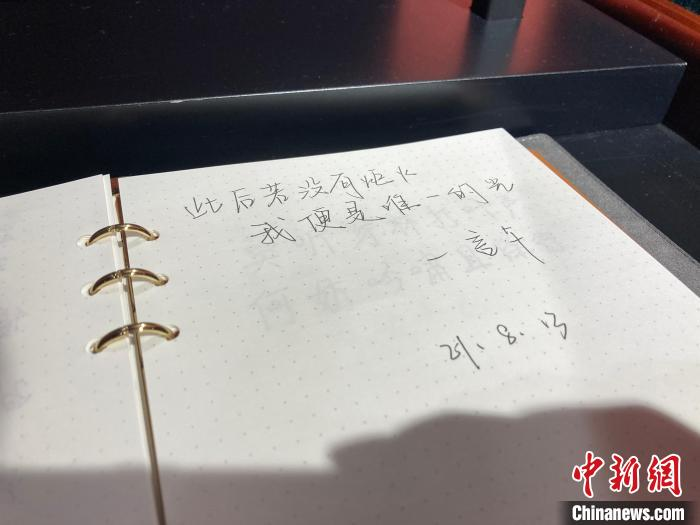 此后若没有炬火
我便是唯一的光
一言午
21.8.13
中新网
Chinanews.com